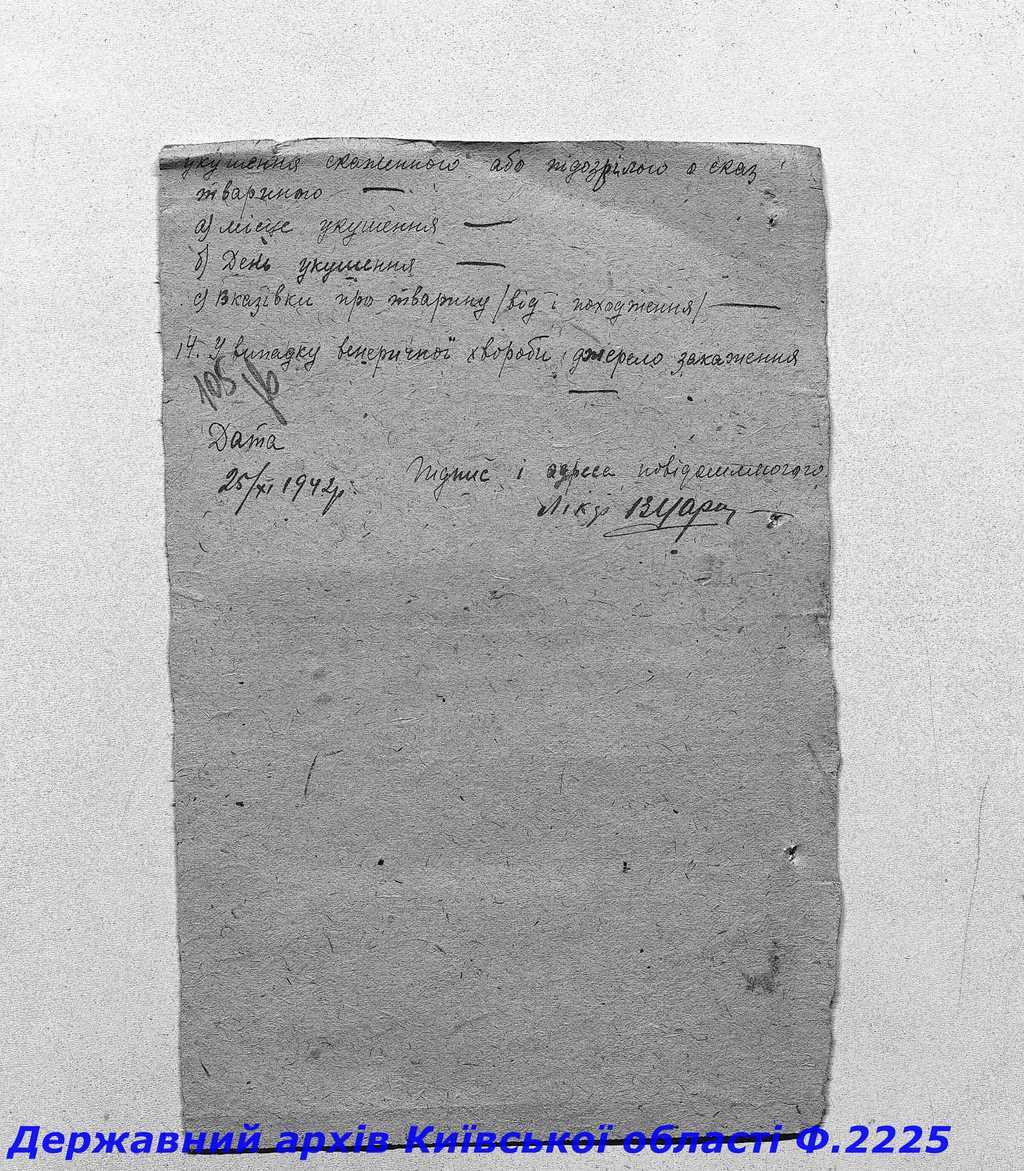 укушення скаженного або підозрілого о сказ
твариною —
а) місце укушення —
б) День укушення —
с) Вказівки про тварину /від і походження/ —
14. У випадку венеричної хвороби джерело закаження
—
105
Дата
25/XI 1942р.
Підпис і адреса повідомляючого
Лікар
Державний архів Київської області Ф.2225